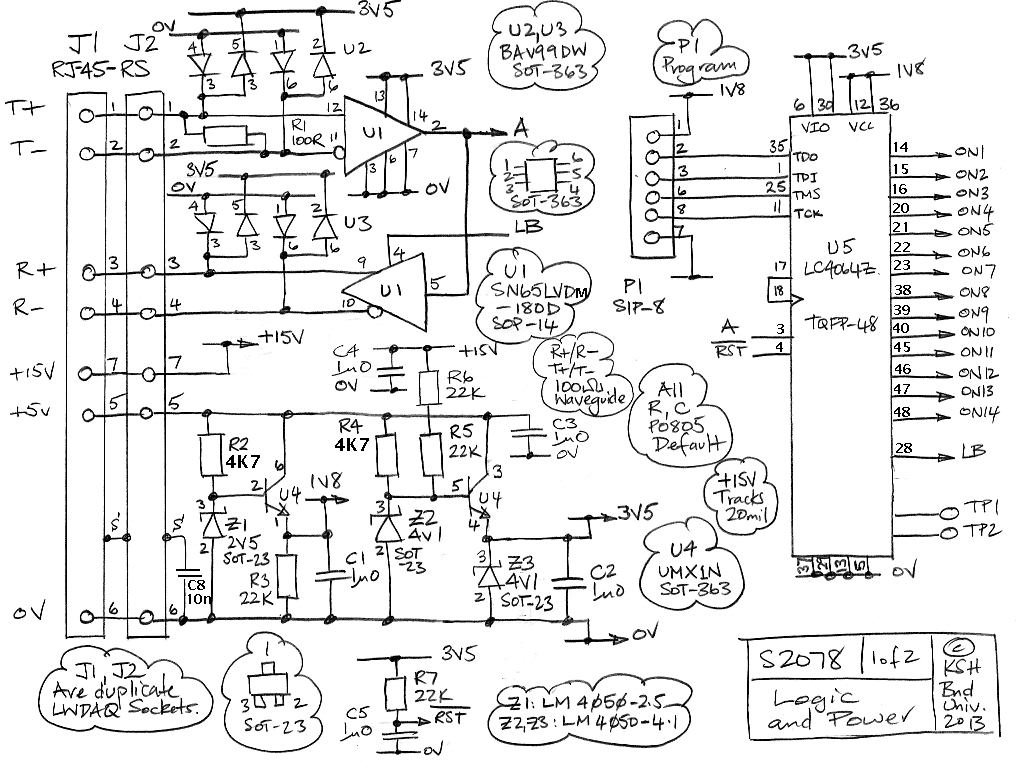 J1 J2
RJ-45-RS
0V
3V5
4 5 1 2 U2
3 3 6 6
T+ 1 1
T- 2 2
R1
100R
12
11
13
14
U1
2
3 6 7
3V5
0V
A
U2,U3
BAV99DW
SOT-363
1 6
2 5
3 4
SOT-363
3V5
0V
4 5 1 2
U3
3 3 6 6
LB
4
R+ 3 3 9
U1 5
R- 4 4 10
U1
SN65LVDM
-180D
SOP-14
+15V
+15V 7 7
+5V 5 5
C4
1u0
0V
+15V
R6
22K
R+/R-
T+/T-
100Ω
Waveguide
All
R,C
P0805
Default
+15V
Tracks
20mil
R2
4K7
6
2
U4
1
1V8
R4
4K7
R5
22K
C3
1u0
0V
3
5
U4
4
S' S'
3
Z1
2V5
SOT-23
2
R3
22K
C1
1u0
3
Z2
4V1
SOT
-23
2
3
Z3
4V1
SOT-23
2
C2
1u0
3V5
U4
UMX1N
SOT-363
C8
10n
0V 6 6
0V
J1, J2
Are duplicate
LWDAQ Sockets.
1
3 2
SOT-23
3V5
R7
22K
RST
C5
1u0
0V
Z1: LM4050-2.5
Z2,Z3: LM4050-4.1
P1
Program
1V8
1
2
3
6
8
7
P1
SIP-8
3V5
1V8
6 30 12 36
VIO VCC
35 TDO
1 TDI
25 TMS
11 TCK
U5
LC4064Z
TQFP-48
17
18
A 3
RST 4
14 ON1
15 ON2
16 ON3
20 ON4
21 ON5
22 ON6
23 ON7
38 ON8
39 ON9
40 ON10
45 ON11
46 ON12
47 ON13
48 ON14
28 LB
TP1
TP2
37 29 13 5 0V
S2078 1 of 2
Logic
and Power
©
KSH
Bnd
Univ.
2013